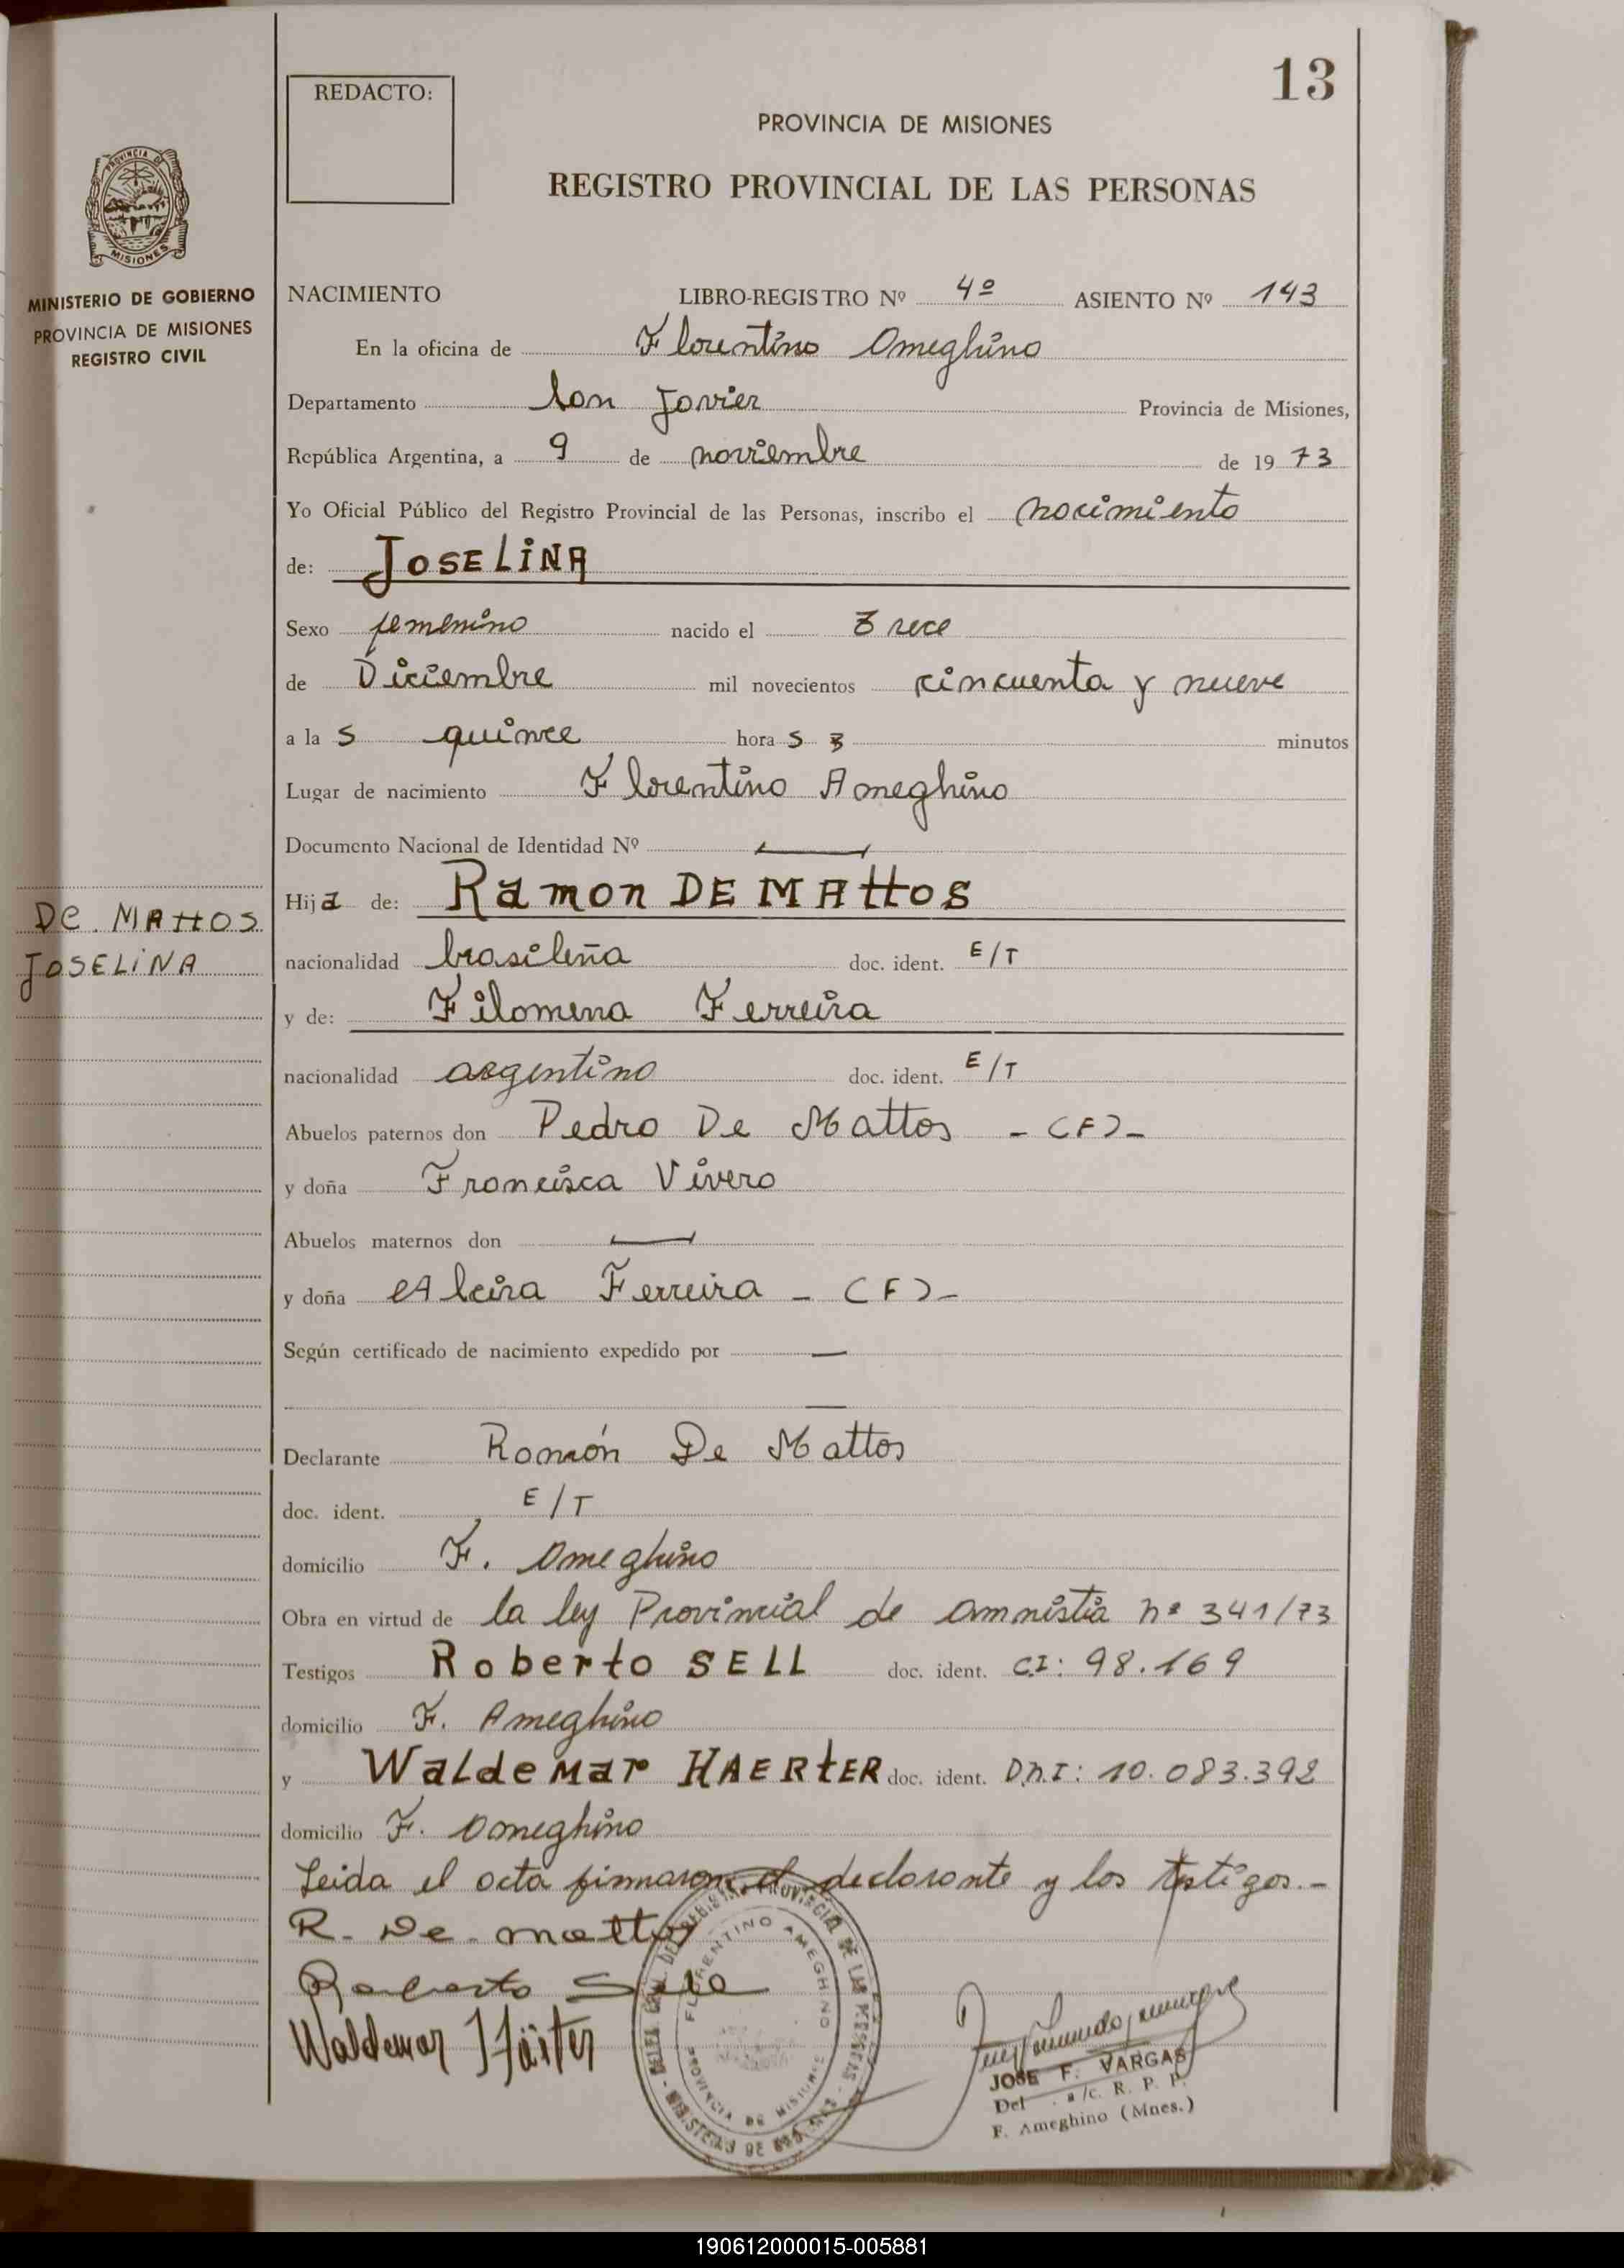 13
REDACTO:
PROVINCIA DE MISIONES
REGISTRO PROVINCIAL DE LAS PERSONAS
PROVINCIA DE
MISIONES
MINISTERIO DE GOBIERNO
PROVINCIA DE MISIONES
REGISTRO CIVIL
NACIMIENTO LIBRO-REGISTRO Nº 4º ASIENTO Nº 143
En la oficina de Florentino Ameghino
Departamento San Javier Provincia de Misiones,
República Argentina, a 9 de noviembre de 19 73
Yo Oficial Público del Registro Provincial de las Personas, inscribo el nacimiento
de: JOSELINA
Sexo femenino nacido el Trece
de Diciembre mil novecientos cincuenta y nueve
a la s quince hora s minutos
Lugar de nacimiento Florentino Ameghino
Documento Nacional de Identidad Nº —
DE. MATTOS
JOSELINA
Hija de: Ramon DE MATTOS
nacionalidad brasileña doc. ident. E/T
y de: Filomena Ferreira
nacionalidad argentino doc. ident. E/T
Abuelos paternos don Pedro De Mattos - (F) -
y doña Francisca Vivero
Abuelos maternos don —
y doña Alcira Ferreira - (F) -
Según certificado de nacimiento expedido por —
—
Declarante Ramón De Mattos
doc. ident. E/T
domicilio F. Ameghino
Obra en virtud de la ley Provincial de amnistia nº 341/73
Testigos Roberto SELL doc. ident. C.I: 98.169
domicilio F. Ameghino
y Waldemar HAERTER doc. ident. D.N.I: 10.083.392
domicilio F. Ameghino
Leida el acta firmaron el declarante y los testigos.-
R. De. mattos
Roberto Sell
Waldemar Härter
FLORENTINO AMEGHINO
PROVINCIA DE MISIONES
JOSE F. VARGAS
Del a/c. R. P. P.
F. Ameghino (Mnes.)
190612000015-005881